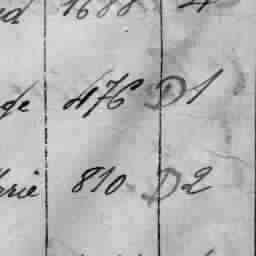 ed 1688 4
ge 476 D1
rie 810 D2